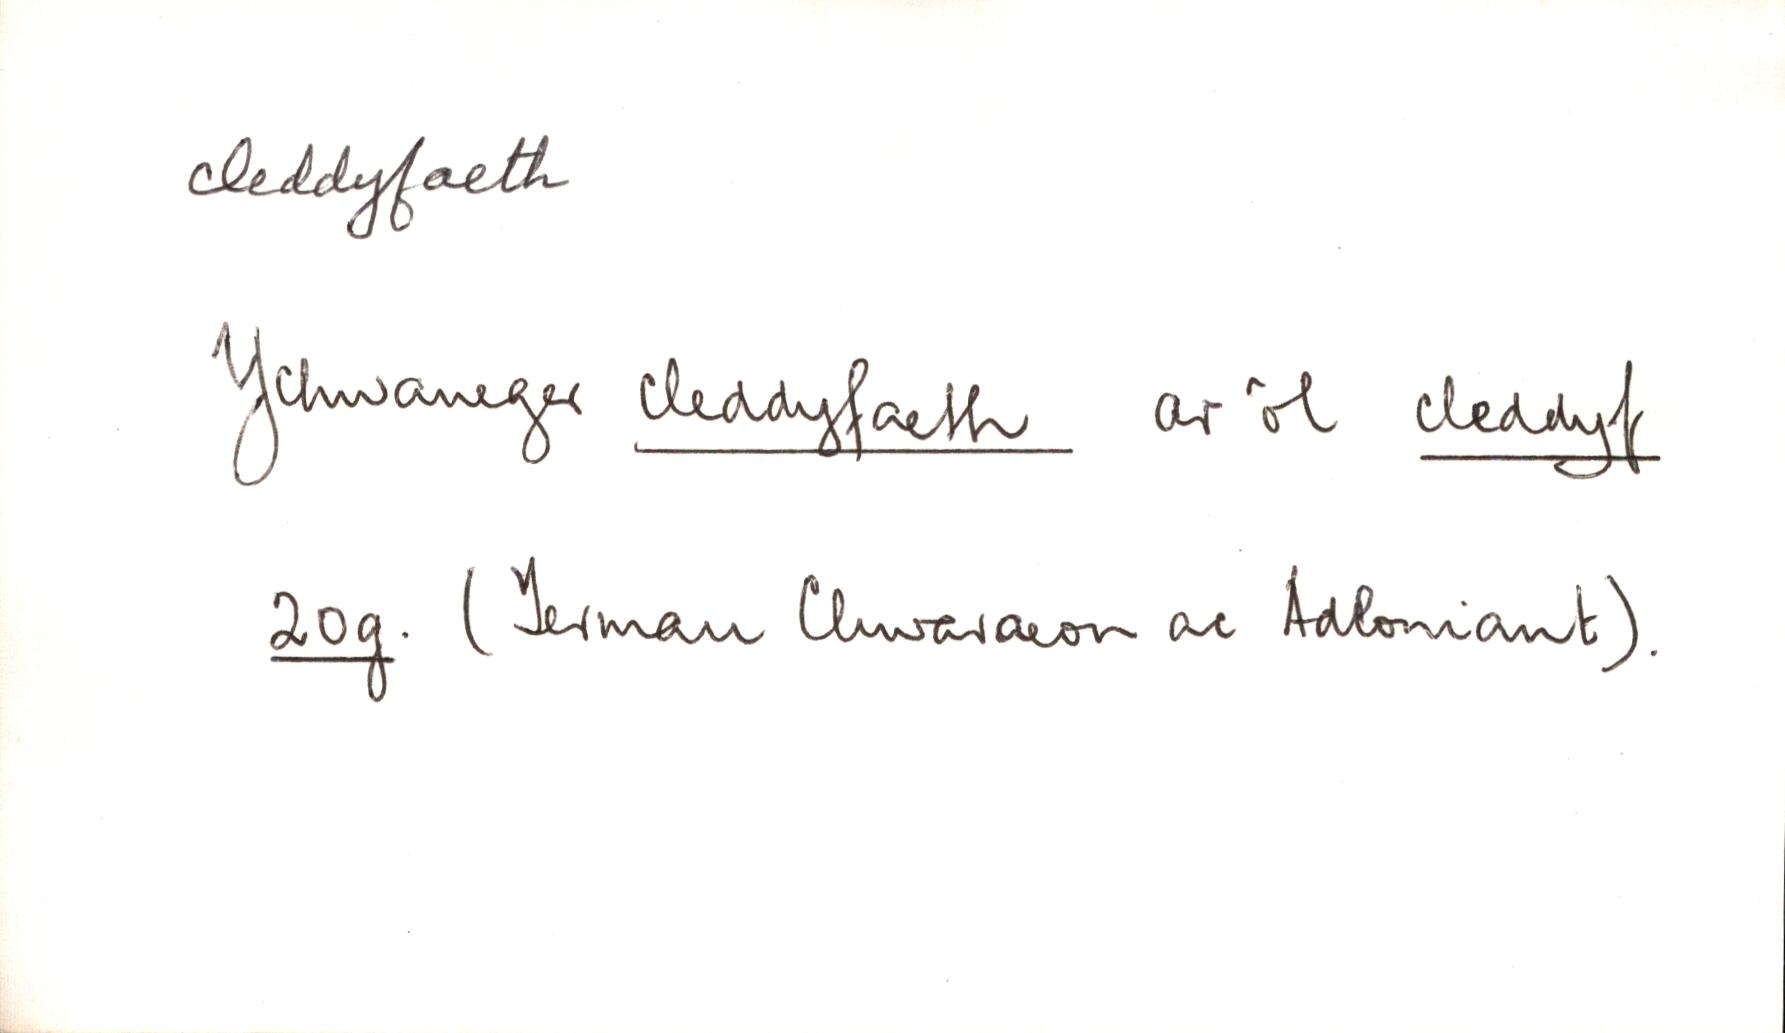 cleddyfaeth
Ychwaneger cleddyfaeth ar ôl cleddyf
20g. (Termau Chwaraeon ac Adloniant).